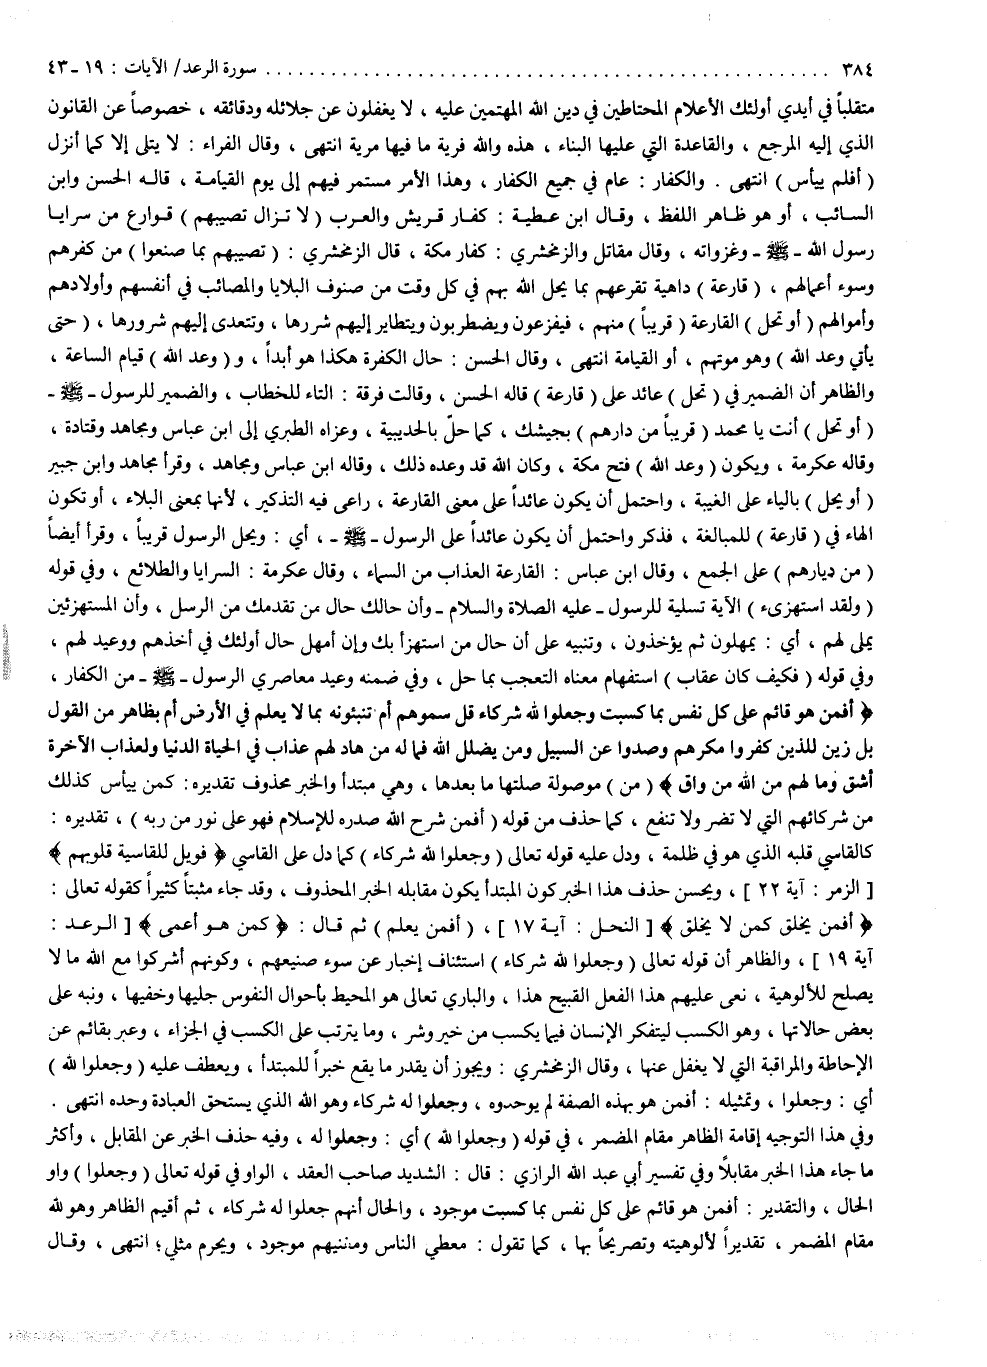 ٣٨٤ ........................................................ سورة الرعد/ الآيات : ١٩ ـ٤٣
متقلباً في أيدي أولئك الأعلام المحتاطين في دين الله المهتمين عليه ، لا يغفلون عن جلائله ودقائقه ، خصوصاً عن القانون
الذي إليه المرجع ، والقاعدة التي عليها البناء ، هذه والله فرية ما فيها مرية انتهى ، وقال الفراء : لا يتلى إلا كما أنزل
( أفلم ييأس ) انتهى . والكفار : عام في جميع الكفار ، وهذا الأمر مستمر فيهم إلى يوم القيامة ، قاله الحسن وابن
السائب ، أو هو ظاهر اللفظ ، وقال ابن عطية : كفار قريش والعرب ( لا تزال تصيبهم ) قوارع من سرايا
رسول الله ـ ﷺ ـ وغزواته ، وقال مقاتل والزمخشري : كفار مكة ، قال الزمخشري : ( تصيبهم بما صنعوا ) من كفرهم
وسوء أعمالهم ، ( قارعة ) داهية تقرعهم بما يحل الله بهم في كل وقت من صنوف البلايا والمصائب في أنفسهم وأولادهم
وأموالهم ( أو تحل ) القارعة ( قريباً ) منهم ، فيفزعون ويضطربون ويتطاير إليهم شررها ، وتتعدى إليهم شرورها ، ( حتى
يأتي وعد الله ) وهو موتهم ، أو القيامة انتهى ، وقال الحسن : حال الكفرة هكذا هو أبداً ، و ( وعد الله ) قيام الساعة ،
والظاهر أن الضمير في ( تحل ) عائد على ( قارعة ) قاله الحسن ، وقالت فرقة : التاء للخطاب ، والضمير للرسول ـ ﷺ ـ
( أو تحل ) أنت يا محمد ( قريباً من دارهم ) بجيشك ، كما حلّ بالحديبية ، وعزاه الطبري إلى ابن عباس ومجاهد وقتادة ،
وقاله عكرمة ، ويكون ( وعد الله ) فتح مكة ، وكان الله قد وعده ذلك ، وقاله ابن عباس ومجاهد ، وقرأ مجاهد وابن جبير
( أو يحل ) بالياء على الغيبة ، واحتمل أن يكون عائداً على معنى القارعة ، راعى فيه التذكير ، لأنها بمعنى البلاء ، أو تكون
الهاء في ( قارعة ) للمبالغة ، فذكر واحتمل أن يكون عائداً على الرسول ـ ﷺ ـ ، أي : ويحل الرسول قريباً ، وقرأ أيضاً
( من ديارهم ) على الجمع ، وقال ابن عباس : القارعة العذاب من السماء ، وقال عكرمة : السرايا والطلائع ، وفي قوله
( ولقد استهزىء ) الآية تسلية للرسول ـ عليه الصلاة والسلام ـ وأن حالك حال من تقدمك من الرسل ، وأن المستهزئين
يملى لهم ، أي : يمهلون ثم يؤخذون ، وتنبيه على أن حال من استهزأ بك وإن أمهل حال أولئك في أخذهم ووعيد لهم ،
وفي قوله ( فكيف كان عقاب ) استفهام معناه التعجب بما حل ، وفي ضمنه وعيد معاصري الرسول ـ ﷺ ـ من الكفار ،
﴿ أفمن هو قائم على كل نفس بما كسبت وجعلوا لله شركاء قل سموهم أم تنبئونه بما لا يعلم في الأرض أم بظاهر من القول
بل زين للذين كفروا مكرهم وصدوا عن السبيل ومن يضلل الله فما له من هاد لهم عذاب في الحياة الدنيا ولعذاب الآخرة
أشق وما لهم من الله من واق ﴾ ( من ) موصولة صلتها ما بعدها ، وهي مبتدأ والخبر محذوف تقديره : كمن ييأس كذلك
من شركائهم التي لا تضر ولا تنفع ، كما حذف من قوله ( أفمن شرح الله صدره للإسلام فهو على نور من ربه ) ، تقديره :
كالقاسي قلبه الذي هو في ظلمة ، ودل عليه قوله تعالى ( وجعلوا لله شركاء ) كما دل على القاسي ﴿ فويل للقاسية قلوبهم ﴾
[ الزمر : آية ٢٢ ] ، ويحسن حذف هذا الخبر كون المبتدأ يكون مقابله الخبر المحذوف ، وقد جاء مثبتاً كثيراً كقوله تعالى :
﴿ أفمن يخلق كمن لا يخلق ﴾ [ النحل : آية ١٧ ] ، ( أفمن يعلم ) ثم قال : ﴿ كمن هو أعمى ﴾ [ الرعد :
آية ١٩ ] ، والظاهر أن قوله تعالى ( وجعلوا لله شركاء ) استئناف إخبار عن سوء صنيعهم ، وكونهم أشركوا مع الله ما لا
يصلح للألوهية ، نعى عليهم هذا الفعل القبيح هذا ، والباري تعالى هو المحيط بأحوال النفوس جليها وخفيها ، ونبه على
بعض حالاتها ، وهو الكسب ليتفكر الإنسان فيما يكسب من خير وشر ، وما يترتب على الكسب في الجزاء ، وعبر بقائم عن
الإحاطة والمراقبة التي لا يغفل عنها ، وقال الزمخشري : ويجوز أن يقدر ما يقع خبراً للمبتدأ ، ويعطف عليه ( وجعلوا لله )
أي : وجعلوا ، وتمثيله : أفمن هو بهذه الصفة لم يوحدوه ، وجعلوا له شركاء وهو الله الذي يستحق العبادة وحده انتهى .
وفي هذا التوجيه إقامة الظاهر مقام المضمر ، في قوله ( وجعلوا لله ) أي : وجعلوا له ، وفيه حذف الخبر عن المقابل ، وأكثر
ما جاء هذا الخبر مقابلاً وفي تفسير أبي عبد الله الرازي : قال : الشديد صاحب العقد ، الواو في قوله تعالى ( وجعلوا ) واو
الحال ، والتقدير : أفمن هو قائم على كل نفس بما كسبت موجود ، والحال أنهم جعلوا له شركاء ، ثم أقيم الظاهر وهو لله
مقام المضمر ، تقديراً لألوهيته وتصريحاً بها ، كما تقول : معطي الناس ومننيهم موجود ، ويحرم مثلي؛ انتهى ، وقال